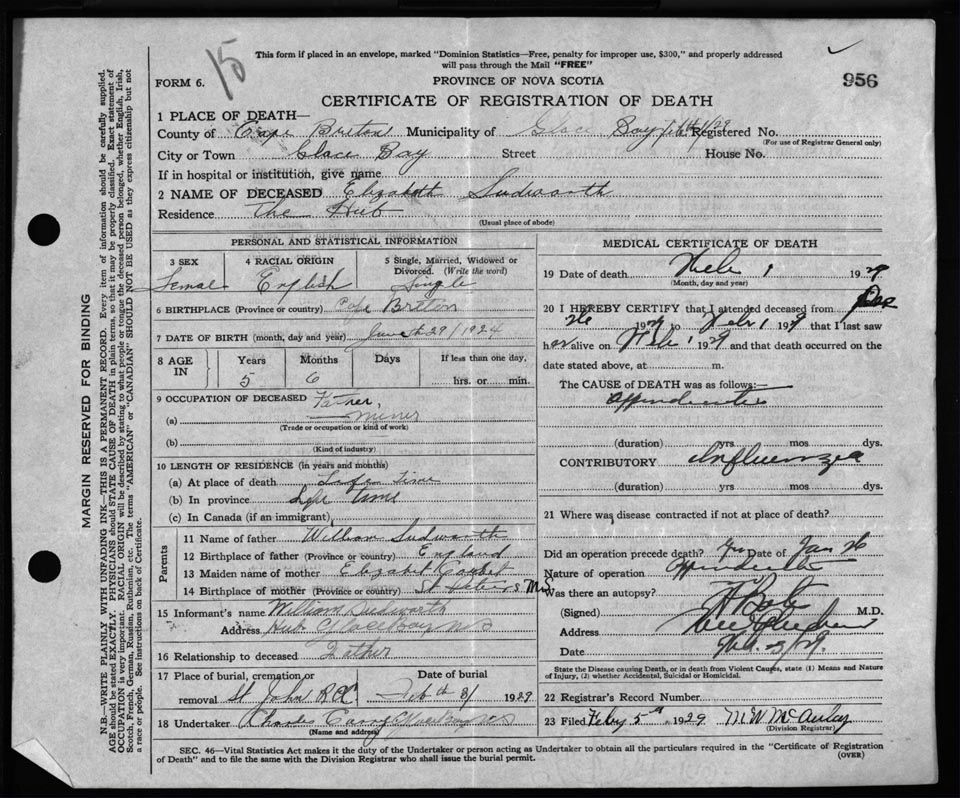 15
This form if placed in an envelope, marked "Dominion Statistics—Free, penalty for improper use, $300," and properly addressed
will pass through the Mail "FREE"
FORM 6.
PROVINCE OF NOVA SCOTIA
956
CERTIFICATE OF REGISTRATION OF DEATH
MARGIN RESERVED FOR BINDING
N.B.—WRITE PLAINLY WITH UNFADING INK—THIS IS A PERMANENT RECORD. Every item of information should be carefully supplied.
AGE should be stated EXACTLY. PHYSICIANS should STATE CAUSE OF DEATH in plain terms, so that it may be properly classified. Exact statement of
OCCUPATION is very important. RACIAL ORIGIN will be described by stating to what people or tongue the deceased person belonged, whether English, Irish,
Scotch, French, German, Russian, Ruthenian, etc. The terms "AMERICAN" or "CANADIAN" SHOULD NOT BE USED as they express citizenship but not
a race or people. See instructions on back of Certificate.
1 PLACE OF DEATH—
County of Cape Breton Municipality of Glace Bay Registered No.
(For use of Registrar General only)
City or Town Glace Bay Street House No.
If in hospital or institution, give name
2 NAME OF DECEASED Elizabeth Sudworth
Residence The Hub
(Usual place of abode)
PERSONAL AND STATISTICAL INFORMATION
3 SEX 4 RACIAL ORIGIN 5 Single, Married, Widowed or
Divorced. (Write the word)
Female English Single
6 BIRTHPLACE (Province or country) Cape Breton
7 DATE OF BIRTH (month, day and year) 29/1924
8 AGE IN Years Months Days If less than one day,
5 6 hrs. or min.
9 OCCUPATION OF DECEASED
(a) Miner
(Trade or occupation or kind of work)
(b)
(Kind of industry)
10 LENGTH OF RESIDENCE (in years and months)
(a) At place of death Life Time
(b) In province Life time
(c) In Canada (if an immigrant)
Parents
11 Name of father William Sudworth
12 Birthplace of father (Province or country) England
13 Maiden name of mother Elizabet
14 Birthplace of mother (Province or country) St Peters
15 Informant's name William Sudworth
Address Hub Glace Bay N S
16 Relationship to deceased Father
17 Place of burial, cremation or
removal St John R.C. Feb 3/ 1929
18 Undertaker Charles
(Name and address)
MEDICAL CERTIFICATE OF DEATH
19 Date of death Feb 1 1929
(Month, day and year)
20 I HEREBY CERTIFY that I attended deceased from
26 1929 to Feb 1 1929 that I last saw
her alive on Feb 1 1929 and that death occurred on the
date stated above, at m.
The CAUSE of DEATH was as follows:—
Appendicitis
(duration) yrs mos dys.
CONTRIBUTORY Influenza
(duration) yrs mos dys.
21 Where was disease contracted if not at place of death?
Did an operation precede death? Yes Date of Jan 26
Nature of operation Appendicitis
Was there an autopsy?
(Signed) M.D.
Address
Date Feb. 3/29.
State the Disease causing Death, or in death from Violent Causes, state (1) Means and Nature
of Injury, (2) whether Accidental, Suicidal or Homicidal.
22 Registrar's Record Number
23 Filed Feby 5th 1929 M W McAulay
(Division Registrar)
SEC. 46—Vital Statistics Act makes it duty of the Undertaker or person acting as Undertaker to obtain all the particulars required in the "Certificate of Registration
of Death" and to file the same with the Division Registrar who shall issue the burial permit.
(OVER)